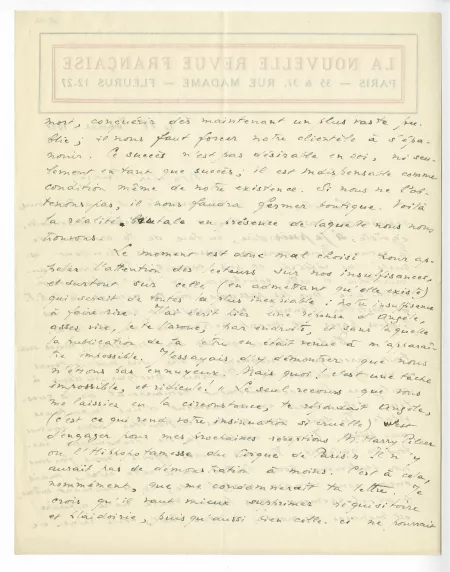 LA NOUVELLE REVUE FRANÇAISE
PARIS — 35 & 37, RUE MADAME — FLEURUS 12-27
mort, conquérir dès maintenant un plus vaste pu-
blic ; il nous faut forcer notre clientèle à s'épa-
nouir. Ce succès n'est pas désirable en soi, ni seu-
lement en tant que succès ; il est indispensable comme
condition même de notre existence. Si nous ne l'ob-
tenons pas, il nous faudra fermer boutique. Voilà
la réalité brutale en présence de laquelle nous nous
trouvons.
Le moment est donc mal choisi pour ap-
peler l'attention des lecteurs sur nos insuffisances,
et surtout sur celle (en admettant qu'elle existe)
qui serait de toutes la plus incurable : notre insuffisance
à faire rire. J'ai écrit hier une réponse d'Angèle,
assez vive, je te l'avoue, par endroits, et sans laquelle
la publication de ta lettre en était venue à m'apparaî-
tre impossible. J'essayais d'y démontrer que nous
n'étions pas ennuyeux. Mais quoi ! c'est une tâche
impossible, et ridicule ! « Le seul recours que vous
me laissiez en la circonstance, te répondait Angèle,
(c'est ce qui rend votre insinuation si cruelle)
d'engager pour mes prochaines réceptions M. Harry Pilcer
ou l'Hippopotame du Cirque de Paris. » Il n'y
aurait pas de démonstration à moins. C'est à cela,
nommément, que me condamnerait ta lettre. Je
crois qu'il vaut mieux supprimer réquisitoire
et plaidoirie, puisqu'aussi bien celle-ci ne pourrait